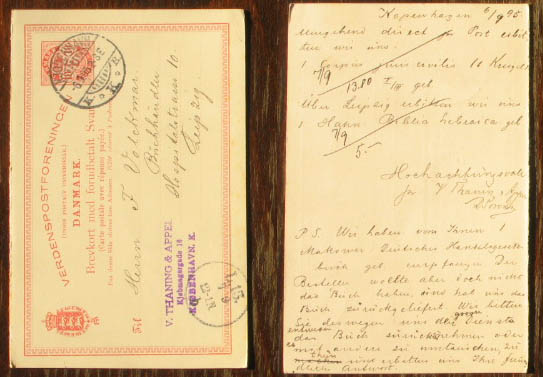 VERDENSPOSTFORENINGEN
(UNION POSTALE UNIVERSELLE)
DANMARK.
Brevkort med forudbetalt Svar
(Carte postale avec réponse payée.)
Til
Herrn F Volckmar
Buchhändler
Hospitalstrasse 10
Leipzig
V. THANING & APPEL
Kjøbmagergade 16
KJØBENHAVN. K.
Kopenhagen 6/9 95
Umgehend direct pr Post erbitten wir uns:
1 Corpus juris civilis
7/9
13.80
geb
Über Leipzig erbitten wir uns
1 Hahn Biblia hebraica geb
7/9
5-
Hochachtungsvoll
pr V Thaning & Appel
P.S. Wir haben von Ihnen 1
Makower Deutsches Handelsgesetz-
buch geb. empfangen. Der
Besteller wollte aber doch nicht
das Buch haben, und hat uns das
Buch zurückgeliefert. Wir bitten
Sie deswegen uns den grossen Dienst
entweder
das Buch zurücknehmen oder
mit anderes zu umtauschen, zu
thun
und erbitten uns Ihre
Antwort.